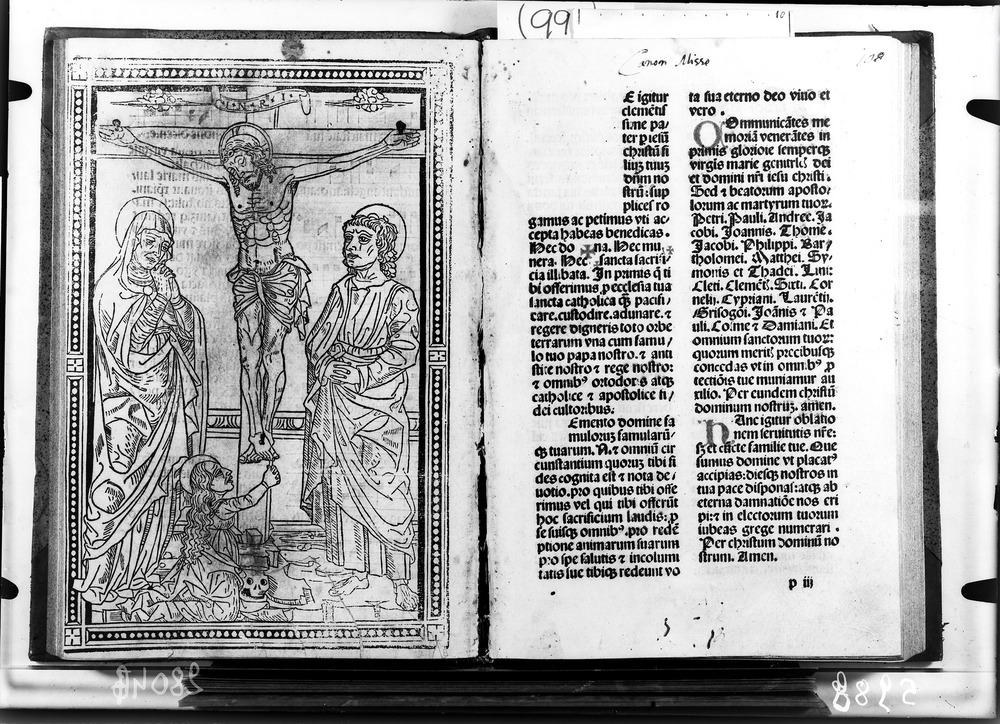 (99
10
I·N·R·I
Canon Misse
E igitur
clemētiſ
ſime pa/
ter p ieſū
chriſtū fi
liuʒ tuuʒ
dn̄m no
ſtrū: ſup
plices ro
gamus ac petimus vti ac/
cepta habeas benedicas.
Hec do ✠ na. Hec mu/
nera. Hec ✠ ſancta ſacrifi/
cia illibata. In primis q̄ ti
bi offerimus p eccleſia tua
ſancta catholica quā pacifi/
care.cuſtodire.adunare.⁊
regere digneris toto orbe
terrarum vna cum famu/
lo tuo papa noſtro.⁊ anti
ſtite noſtro ⁊ rege noſtro:
⁊ omnibꝰ ortodoxis atqʒ
catholice ⁊ apoſtolice fi/
dei cultoribus.
Emento domine fa
mulorum famularū/
qʒ tuarum.N.⁊ omniū cir
cunſtantium quoruʒ tibi fi
des cognita eſt ⁊ nota de/
uotio.pro quibus tibi offe
rimus vel qui tibi offerūt
hoc ſacrificium laudis:p
ſe ſuiſqʒ omnibꝰ.pro redē
ptione animarum ſuarum
pro ſpe ſalutis ⁊ incolumi
tatis ſue tibiqʒ reddunt vo
ta ſua eterno deo viuo et
vero.
Ommunicātes me
moriā venerātes in
primis glorioſe ſemperqʒ
virgīs marie genitricis dei
et domini nr̄i ieſu chriſti.
Sed ⁊ beatorum apoſto/
lorum ac martyrum tuoꝝ.
Petri.Pauli.Andree.Ja
cobi.Joannis.Thome.
Jacobi.Philippi.Bar/
tholomei.Matthei.Sy/
monis et Thadei.Lini:
Cleti.Clemētis.Sixti.Cor
nelij.Cypriani.Laurētij.
Griſogōi.Joānis ⁊ Pa
uli.Coſme ⁊ Damiani.Et
omnium ſanctorum tuoꝝ:
quorum meritis precibuſqʒ
concedas vt in omnibꝰ p
tectiōis tue muniamur au
xilio.Per eundem chriſtū
dominum noſtruʒ.amen.
hAnc igitur oblatio
nem ſeruitutis nr̄e:
ſʒ et cūcte familie tue.Que
ſumus domine vt placatꝰ
accipias:dieſqʒ noſtros in
tua pace diſponas:atqʒ ab
eterna damnatiōe nos eri
pi:⁊ in electorum tuorum
iubeas grege numerari.
Per chriſtum dominū no
ſtrum. Amen.
p iij
2804B
5988